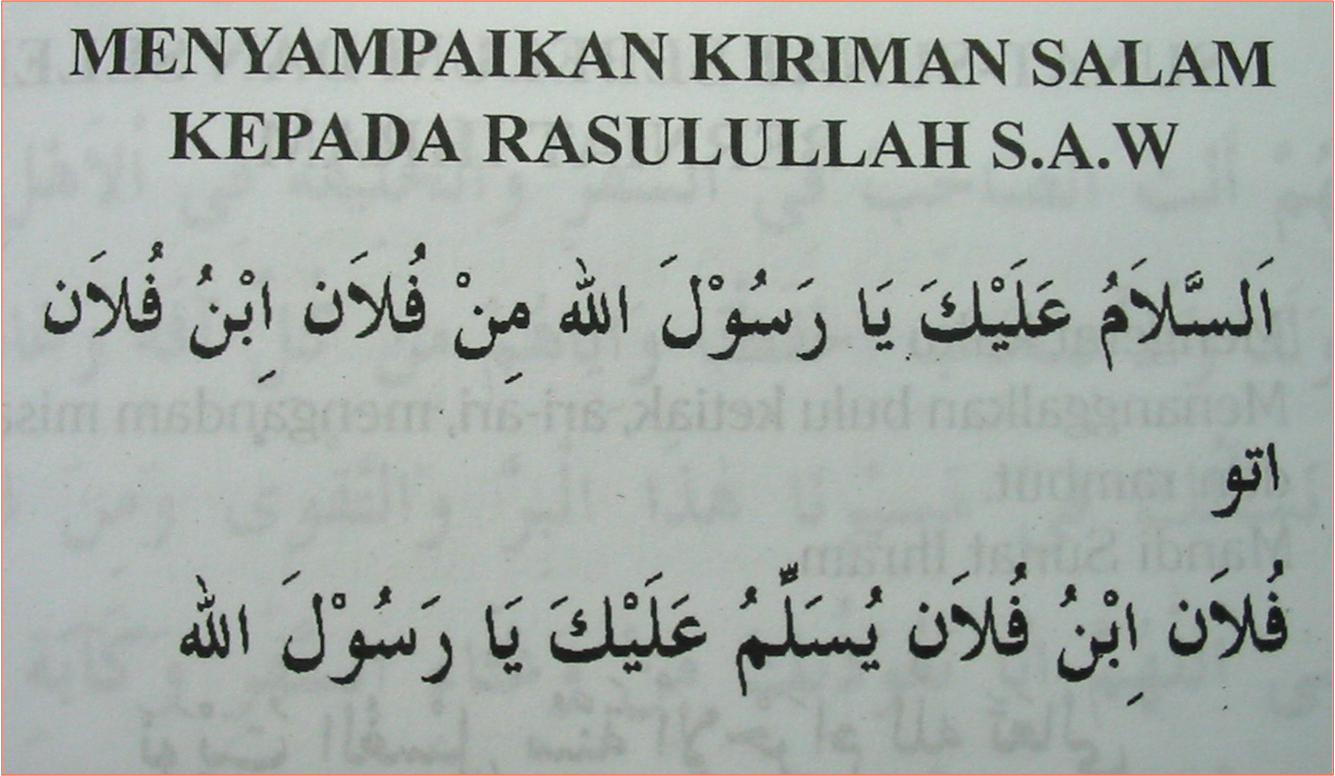 MENYAMPAIKAN KIRIMAN SALAM
KEPADA RASULULLAH S.A.W
اَلسَّلاَمُ عَلَيْكَ يَا رَسُوْلَ الله مِنْ فُلاَن اِبْنُ فُلاَن
اتو
فُلاَن اِبْنُ فُلاَن يُسَلِّمُ عَلَيْكَ يَا رَسُوْلَ الله